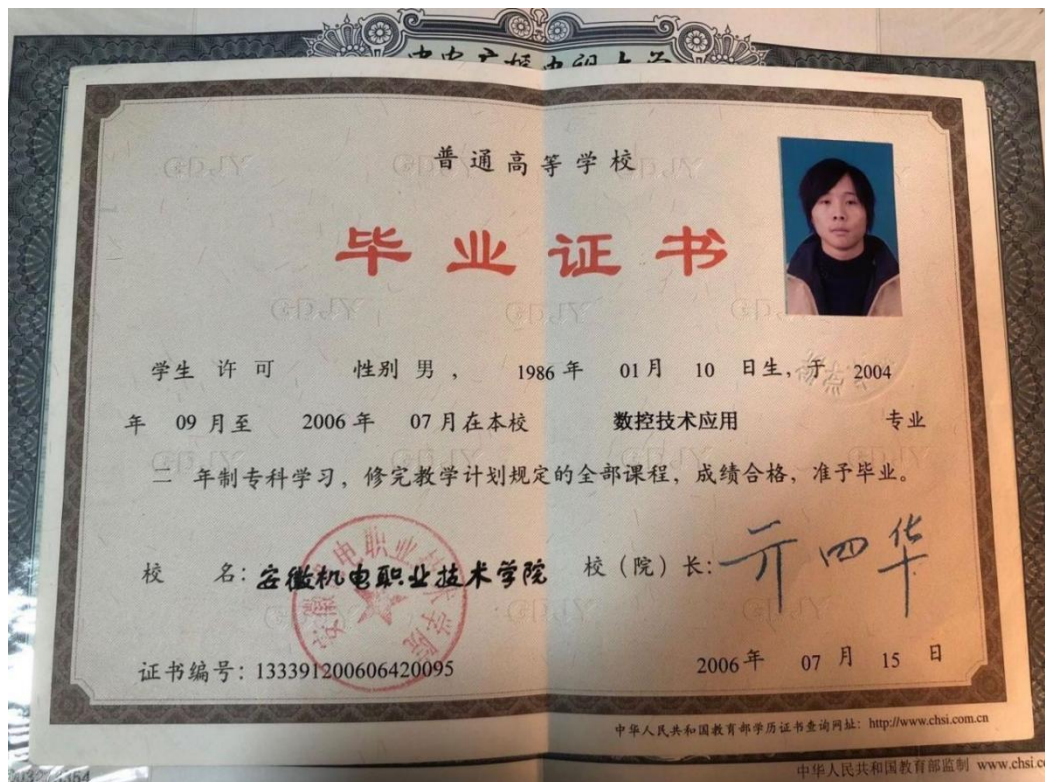 中央广播电视大学
普通高等学校
毕业证书
学生 许可 性别 男 , 1986 年 01 月 10 日生, 于 2004
年 09 月至 2006 年 07 月在本校 数控技术应用 专业
二 年制专科学习, 修完教学计划规定的全部课程, 成绩合格, 准予毕业。
校 名: 安徽机电职业技术学院 校(院)长:
安徽机电职业技术学院
证书编号: 133391200606420095 2006 年 07 月 15 日
中华人民共和国教育部学历证书查询网址: http://www.chsi.com.cn
中华人民共和国教育部监制 www.chsi.c